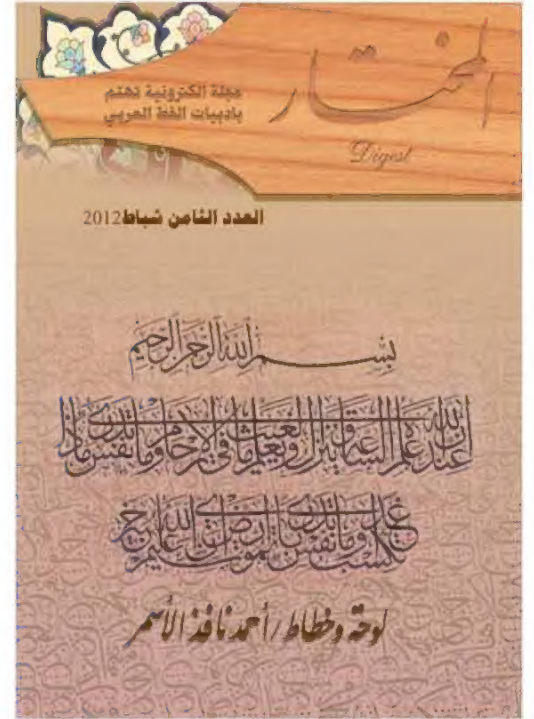 المختار
Digest
مجلة الكترونية تهتم
بادبيات الخط العربي
العدد الثامن شباط 2012
بسم الله الرحمن الرحيم
إن الله عنده علم الساعة وينزل الغيث ويعلم ما في الأرحام وما تدري نفس ماذا
تكسب غدا وما تدري نفس بأي أرض تموت إن الله عليم خبير
لوحة وخطاط / أحمد نافذ الأسمر